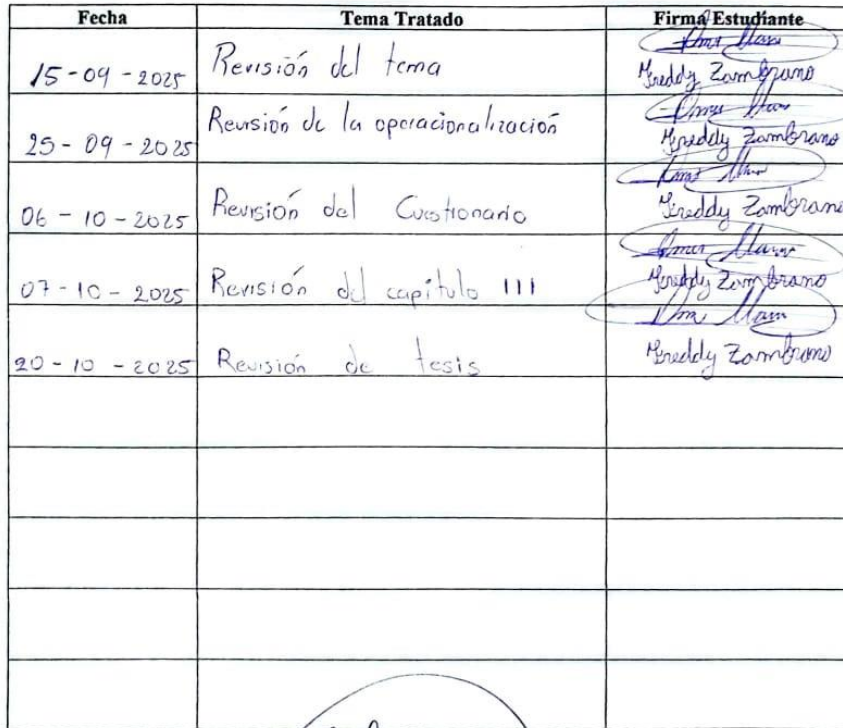 Fecha Tema Tratado Firma Estudiante
15-09-2025 Revisión del tema
Freddy Zambrano
25-09-2025 Revisión de la operacionalización
Freddy Zambrano
06-10-2025 Revisión del Cuestionario
Freddy Zambrano
07-10-2025 Revisión del capítulo III
Freddy Zambrano
20-10-2025 Revisión de tesis
Freddy Zambrano